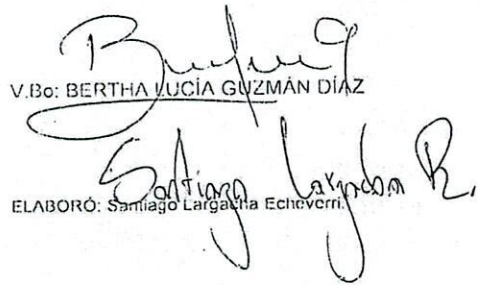 V.Bo: BERTHA LUCÍA GUZMÁN DÍAZ
Santiago
ELABORÓ: Santiago Largacha Echeverri.